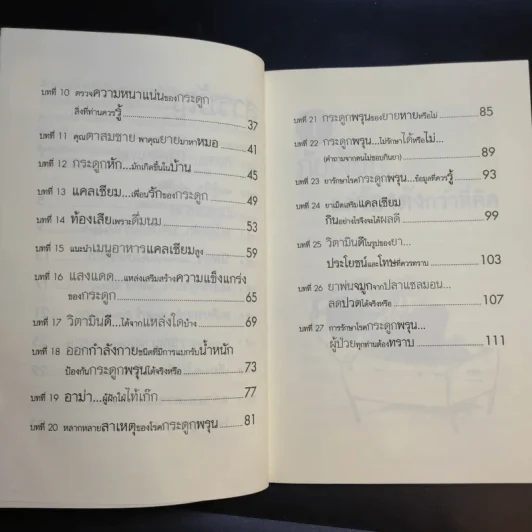 บทที่ 10 ตรวจความหนาแน่นของกระดูก
สิ่งที่ท่านควรรู้ 37
บทที่ 11 คุณตาสมชาย พาคุณยายมาหาหมอ 41
บทที่ 12 กระดูกหัก...มักเกิดขึ้นในบ้าน 45
บทที่ 13 แคลเซียม...เพื่อนรักของกระดูก 49
บทที่ 14 ท้องเสียเพราะดื่มนม 53
บทที่ 15 แนะนำเมนูอาหารแคลเซียมสูง 59
บทที่ 16 แสงแดด...แหล่งเสริมสร้างความแข็งแกร่ง
ของกระดูก 65
บทที่ 17 วิตามินดี...ได้จากแหล่งใดบ้าง 69
บทที่ 18 ออกกำลังกายชนิดที่มีการแบกรับน้ำหนัก
ป้องกันกระดูกพรุนได้จริงหรือ 73
บทที่ 19 อาม่า...ผู้ฝักใฝ่ไท้เก๊ก 77
บทที่ 20 หลากหลายสาเหตุของโรคกระดูกพรุน 81
บทที่ 21 กระดูกพรุนของยายหายหรือไม่ 85
บทที่ 22 กระดูกพรุน...ไม่รักษาได้หรือไม่...
(คำถามจากคนไม่ชอบกินยา) 89
บทที่ 23 ยารักษาโรคกระดูกพรุน...ข้อมูลที่ควรรู้ 93
บทที่ 24 ยาเม็ดเสริมแคลเซียม
กินอย่างไรจึงจะได้ผลดี 99
บทที่ 25 วิตามินดีในรูปของยา...
ประโยชน์และโทษที่ควรทราบ 103
บทที่ 26 ยาพ่นจมูกจากปลาแซลมอน...
ลดปวดได้จริงหรือ 107
บทที่ 27 การรักษาโรคกระดูกพรุน...
ผู้ป่วยทุกท่านต้องทราบ 111